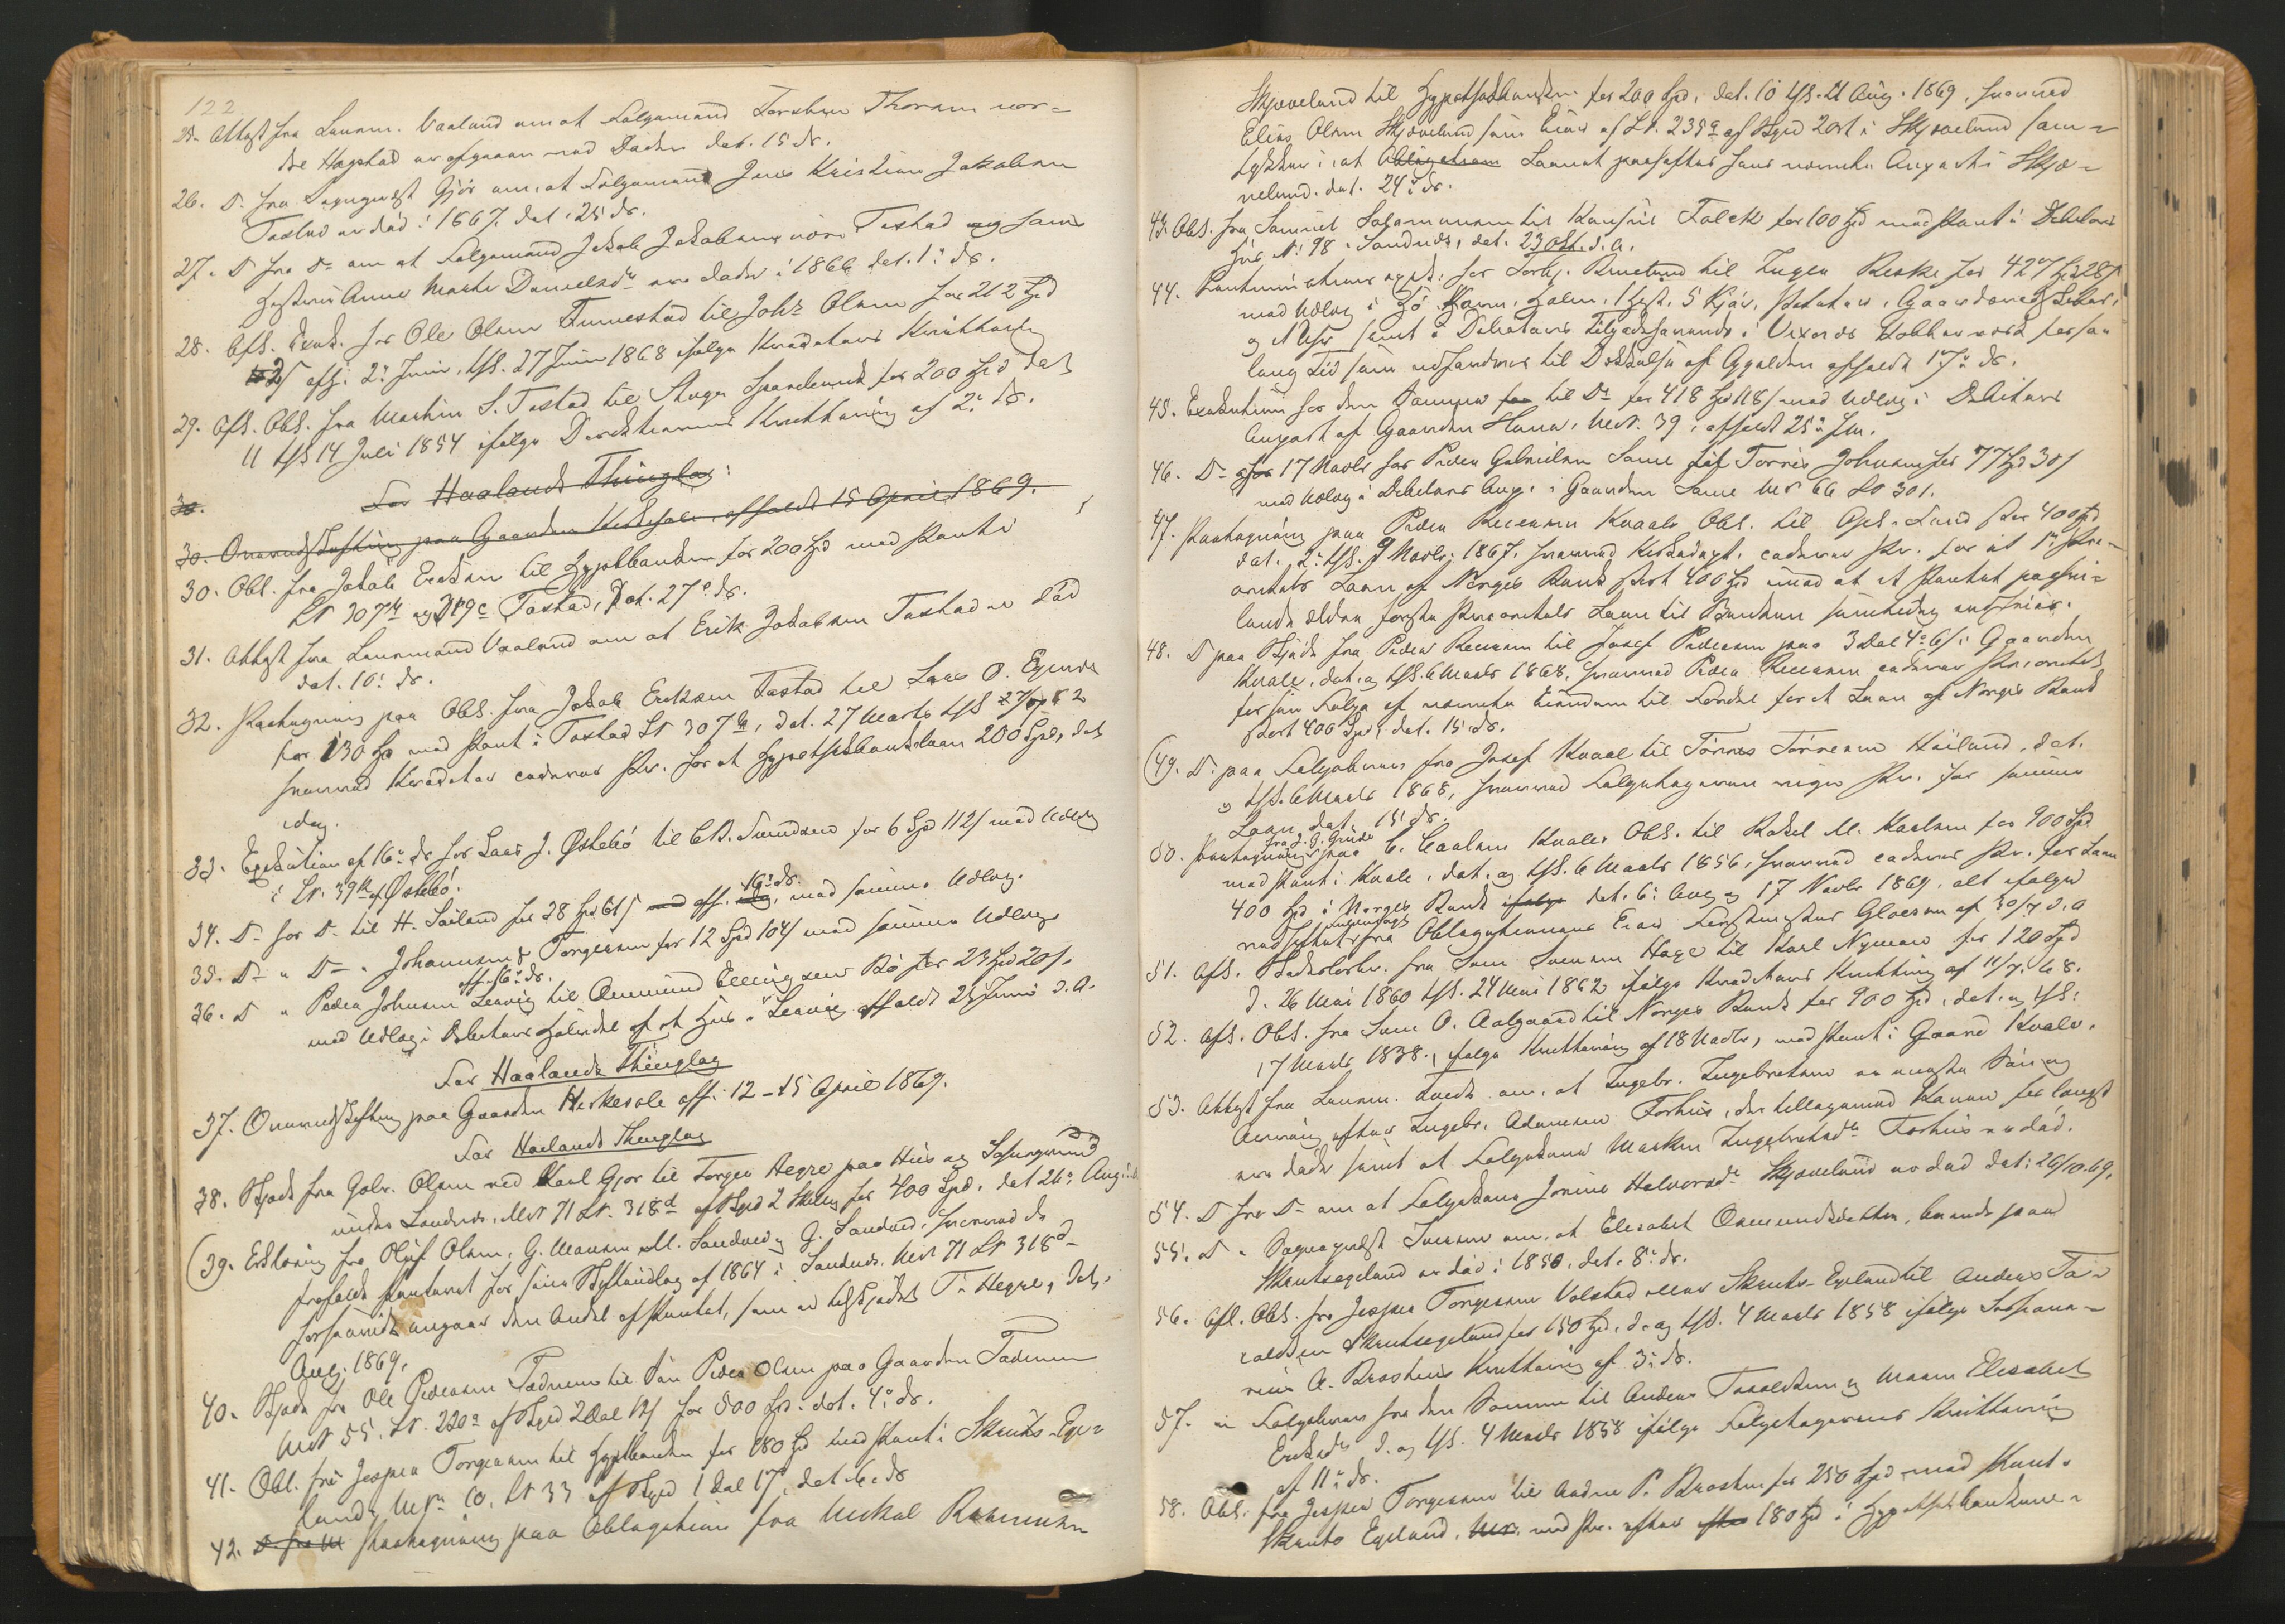 122
25. Attest fra Lensm. Vaaland om at Følgemand Torsten Thorsen nor=
dre Hogstad er afgaaen ved Døden dat. 15 ds.
26. D. fra Sognepræst Gjør om, at Følgemand Jens Kristian Jakobsen
Tastad er død i 1867. dat. 25 ds.
27. D fra D– om at Følgemand Jakob Jakobsen nöre Tastad og hans
Hustru Anne Marthe Danielsdr. ere døde i 1866 dat. 1: ds.
28. Afl. Exek. for Ole Olsen Tunnestad til Johs Olsen for 212 Spd
2 ß aff: 2: Juni, thl. 27 Juni 1868 ifølge Kreditors Kvittering
29. Afl. Obl. fra Marthin S. Tastad til Stavgr Sparebank for 200 Spd dat
11 thl 14 Juli 1854 ifølge Direktionens Kvittering af 2: ds.
For Haalands Thinglag:
30.
30. Omvudskiftning paa Gaarden Kirkesole, afholdt 15 April 1869.
30. Obl. fra Jakob Eriksen til Hypotbanken for 200 Spd med Pant i
LN 307b og 319c Tastad, Dat. 27: ds.
31. Attest fra Lensmand Vaaland om at Erik Jakobsen Tastad er død
dat. 10: ds.
32. Paategning paa Obl. fra Jakob Eriksen Tastad til Lars O. Egenes
for 130 Sp med Pant i Tastad LN 307b, dat. 27 Marts thl
hvorved Kreditor cederer Pr. for et Hypothekbanklaan 200 Spd, dat
idag.
33. Exekution af 16: ds for Lars J. Østebö til C. B. Svendsen for 6 Spd 112 ß med Udlæg
i LN. 39b af Østebö.
34. D– for D– til H. Söiland for 28 Spd 61 ß aff. 16: ds. med samme Udlæg.
35. D– " D– " Johannesen & Torgersen for 12 Spd 104 ß med samme Udlæg
aff. 16: ds.
36. D " Peder Johnsen Leervig til Ommund Ellingsen Bö for 23 Spd 20 ß
med Udlæg i Debitors Halvdel af et Hus i Leervig afholdt 25 Juni d. A.
For Haalands Thinglag
37. Omvudskiftning paa Gaarden Kirkesole aff: 12–15 April 1869.
For Høilands Thinglag
38. Skjøde fra Gabr. Olsen ved Karl Gjør til Torger Hegre paa Hus og Havegrund
under Sandnes, MN 71 LN. 318d af Skyld 2 Skilling for 400 Spd. dat 26: August
(39. Erklæring fra Oluf Olsen, G. Monsen, M. Sandved og G. Sandved, hvorved de
frafalde Panteret for sine Skyldnerlag af 1864 i Sandnes MN 71 LN 318d
forsaavidt angaar den Andel af Pantet, som er tilskjødet T. Hegre, dat.
Aug. 1869.
40. Skjøde fra Ole Pedersen Fødnem til Søn Peder Olsen paa Gaarden Fødnem
MN 55. LN. 220a af Skyld 2 Dal 12 ß for 500 Spd. dat. 4: ds.
41. Obl. fra Jesper Torgersen til Hypbanken for 180 Spd med Pant i Skeiks-Ege=
land: MN 10, LN 33 af Skyld 1 Dal 17, dat. 6: ds
42. D fra M Paategning paa Obligation fra Mikal Rasmussen
Skjæveland til Hypothekbanken for 200 Spd. dat. 10 thl. 21 Aug. 1869, hvorved
Elias Olsen Skjæveland som Eier af LN. 235a af Skyld 2 Ort i Skjæveland sam=
tykker i, at Obligationen Laanet paahefter hans nævnte Anpart i Skjæ=
veland. dat. 24: ds.
43. Obl. fra Samuel Salomonsen til Konsul Falck for 100 Spd med Pant i Debitors
Hus N: 98 i Sandnes, dat. 23 Okt. d. A.
44. for Torkj. Bruelund til Inger Reske for 427 Spd 28 ß
med Udlæg i Hö Korn, Halm, 1 Hest, 5 Kjör, Poteter, Gaardsredskaber,
og 1 Uhr samt i Debitors Tilgodehavende i Vixnes Kobberværk for saa
lang Tid som udfordres til Dækkelse af Gjælden afholdt 17: ds.
45. Exekution for den Samme for til D– for 418 Spd 118 ß med Udlæg i Debitors
Anpart af Gaarden Hana, MN. 39, afholdt 25: Jan.
46. D– for 17 Novbr for Peder Gabrielsen Some til Torris Johnsen for 77 Spd 30 ß
med Udlæg i Debitors Anp. i Gaarden Some MN 66 LN 301.
47. Paategning paa Peder Reiersen Kvals Obl. til Opl. Fond for 400 Spd
dat. 2: thl. 9 Novbr. 1867, hvorved cederer Pr. for et 1ste Prio=
ritets Laan af Norges Bank stort 400 Spd mod at et Pantet paahvi=
lende ældre første Prioritets Laan til Banken samtidig indfries.
48. D paa Skjøde fra Peder Reiersen til Josef Pedersen paa 3 Dal 4: 6 ß i Gaarden
Kvale, dat. og thl. 6 Marts 1868, hvorved Peder Reiersen cederer Prioritet
for sin Følge af nævnte Eiendom til Fordel for et Laan af Norges Bank
stort 400 Spd, dat. 15: ds.
(49. D. paa Følgebrev fra Josef Kvaal til Törres Törresen Höiland, dat.
og thl. 6 Marts 1868, hvorved Følgetageren viger Pr. for samme
Laan, dat. 15: ds.
50. Paategning fra J. G. Grude paa C. Carlsen Kvales Obl. til Rakel M. Karlsen for 900 Spd
med Pant i Kvale, dat. og thl. 6 Marts 1856, hvorved cederer Pr. for Laan
400 Spd i Norges Bank ifølge dat. 6: Aug og 17 Novbr 1869, alt ifølge
Obligationens Eier Gloersen af 30/7 d. A
51. Afl. Skadesløsbr. fra Sven Svensen Hage til Karl Nyman for 120 Spd
d. 26 Mai 1860 thl. 24 Mai 1862 ifølge Kreditors Kvittering af 11/7. 68.
52. Afl. Obl. fra Sven O. Aalgaard til Norges Bank for 900 Spd, dat. og thl:
17 Marts 1838., ifølge Kvittering af 18 Novbr, med Pant i Gaard Kvale.
53. Attest fra Lensm. Tvedt om, at Ingebr. Ingebretsen er eneste Sön og
Arving efter Ingebr. Adamsen Forhus, der tilligemed Konen for længst
ere døde samt at Følgekone Marthe Ingebretsdr. Forhus er død.
54. D fra D– om at Følgekone Jorine Halvorsdr. Skjæveland er død dat: 26/10. 69.
55. D " Sogneprest Iversen om, at Elisabet Osmundsdatter, boende paa
Skeiksegeland er død i 1850, dat. 8: ds.
56. Afl. Obl. fra Jesper Torgersen Volstad eller Skeiks-Egeland til Anders Ta=
raldsen Skeiksegeland for 150 Spd. d. og thl. 4 Marts 1858 ifølge
A. Brastens Kvittering af 3: ds.
57. " Følgebrev fra den Samme til Anders Taraldsen og Maren Elisabet
Eriksdr. d. og thl. 4 Marts 1858 ifølge Følgetagerens Kvittering
af 11: ds.
58. Obl. fra Jesper Torgersen til Anders P. Brasten for 250 Spd med Pant i
Skeiks Egeland, MN. med Pr. efter efter 180 Spd i Hypothekbanken